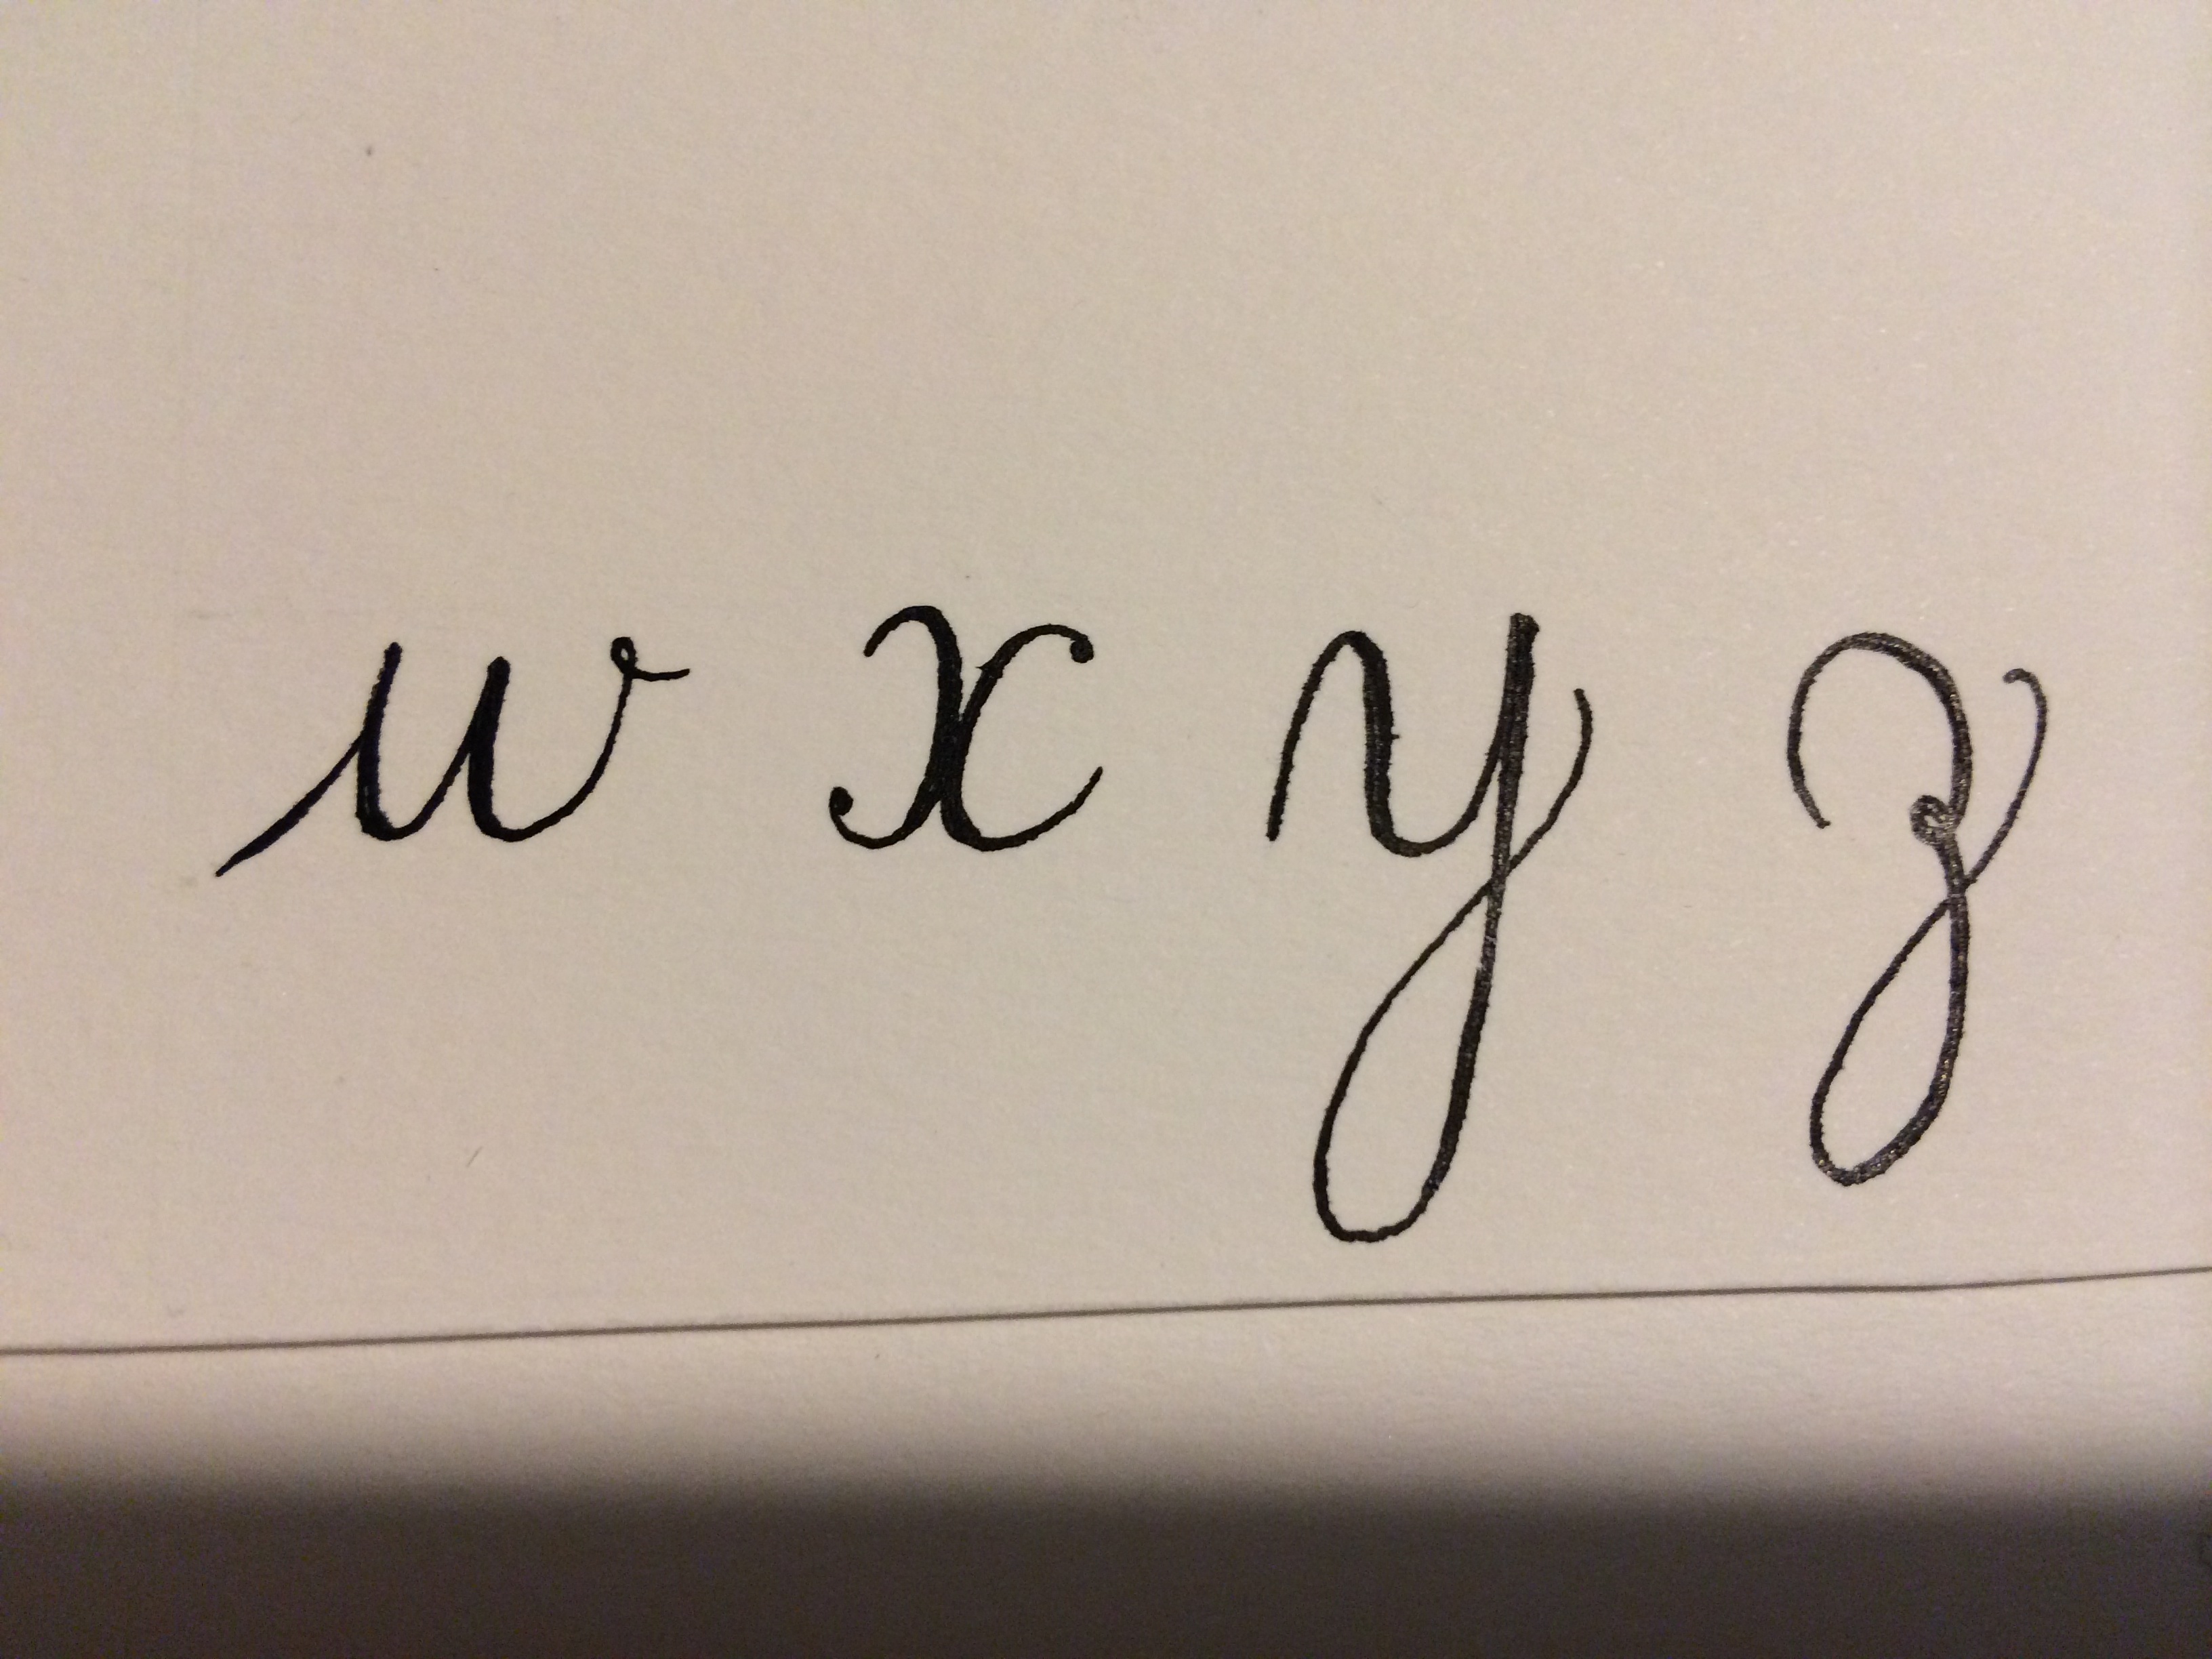 w x y z